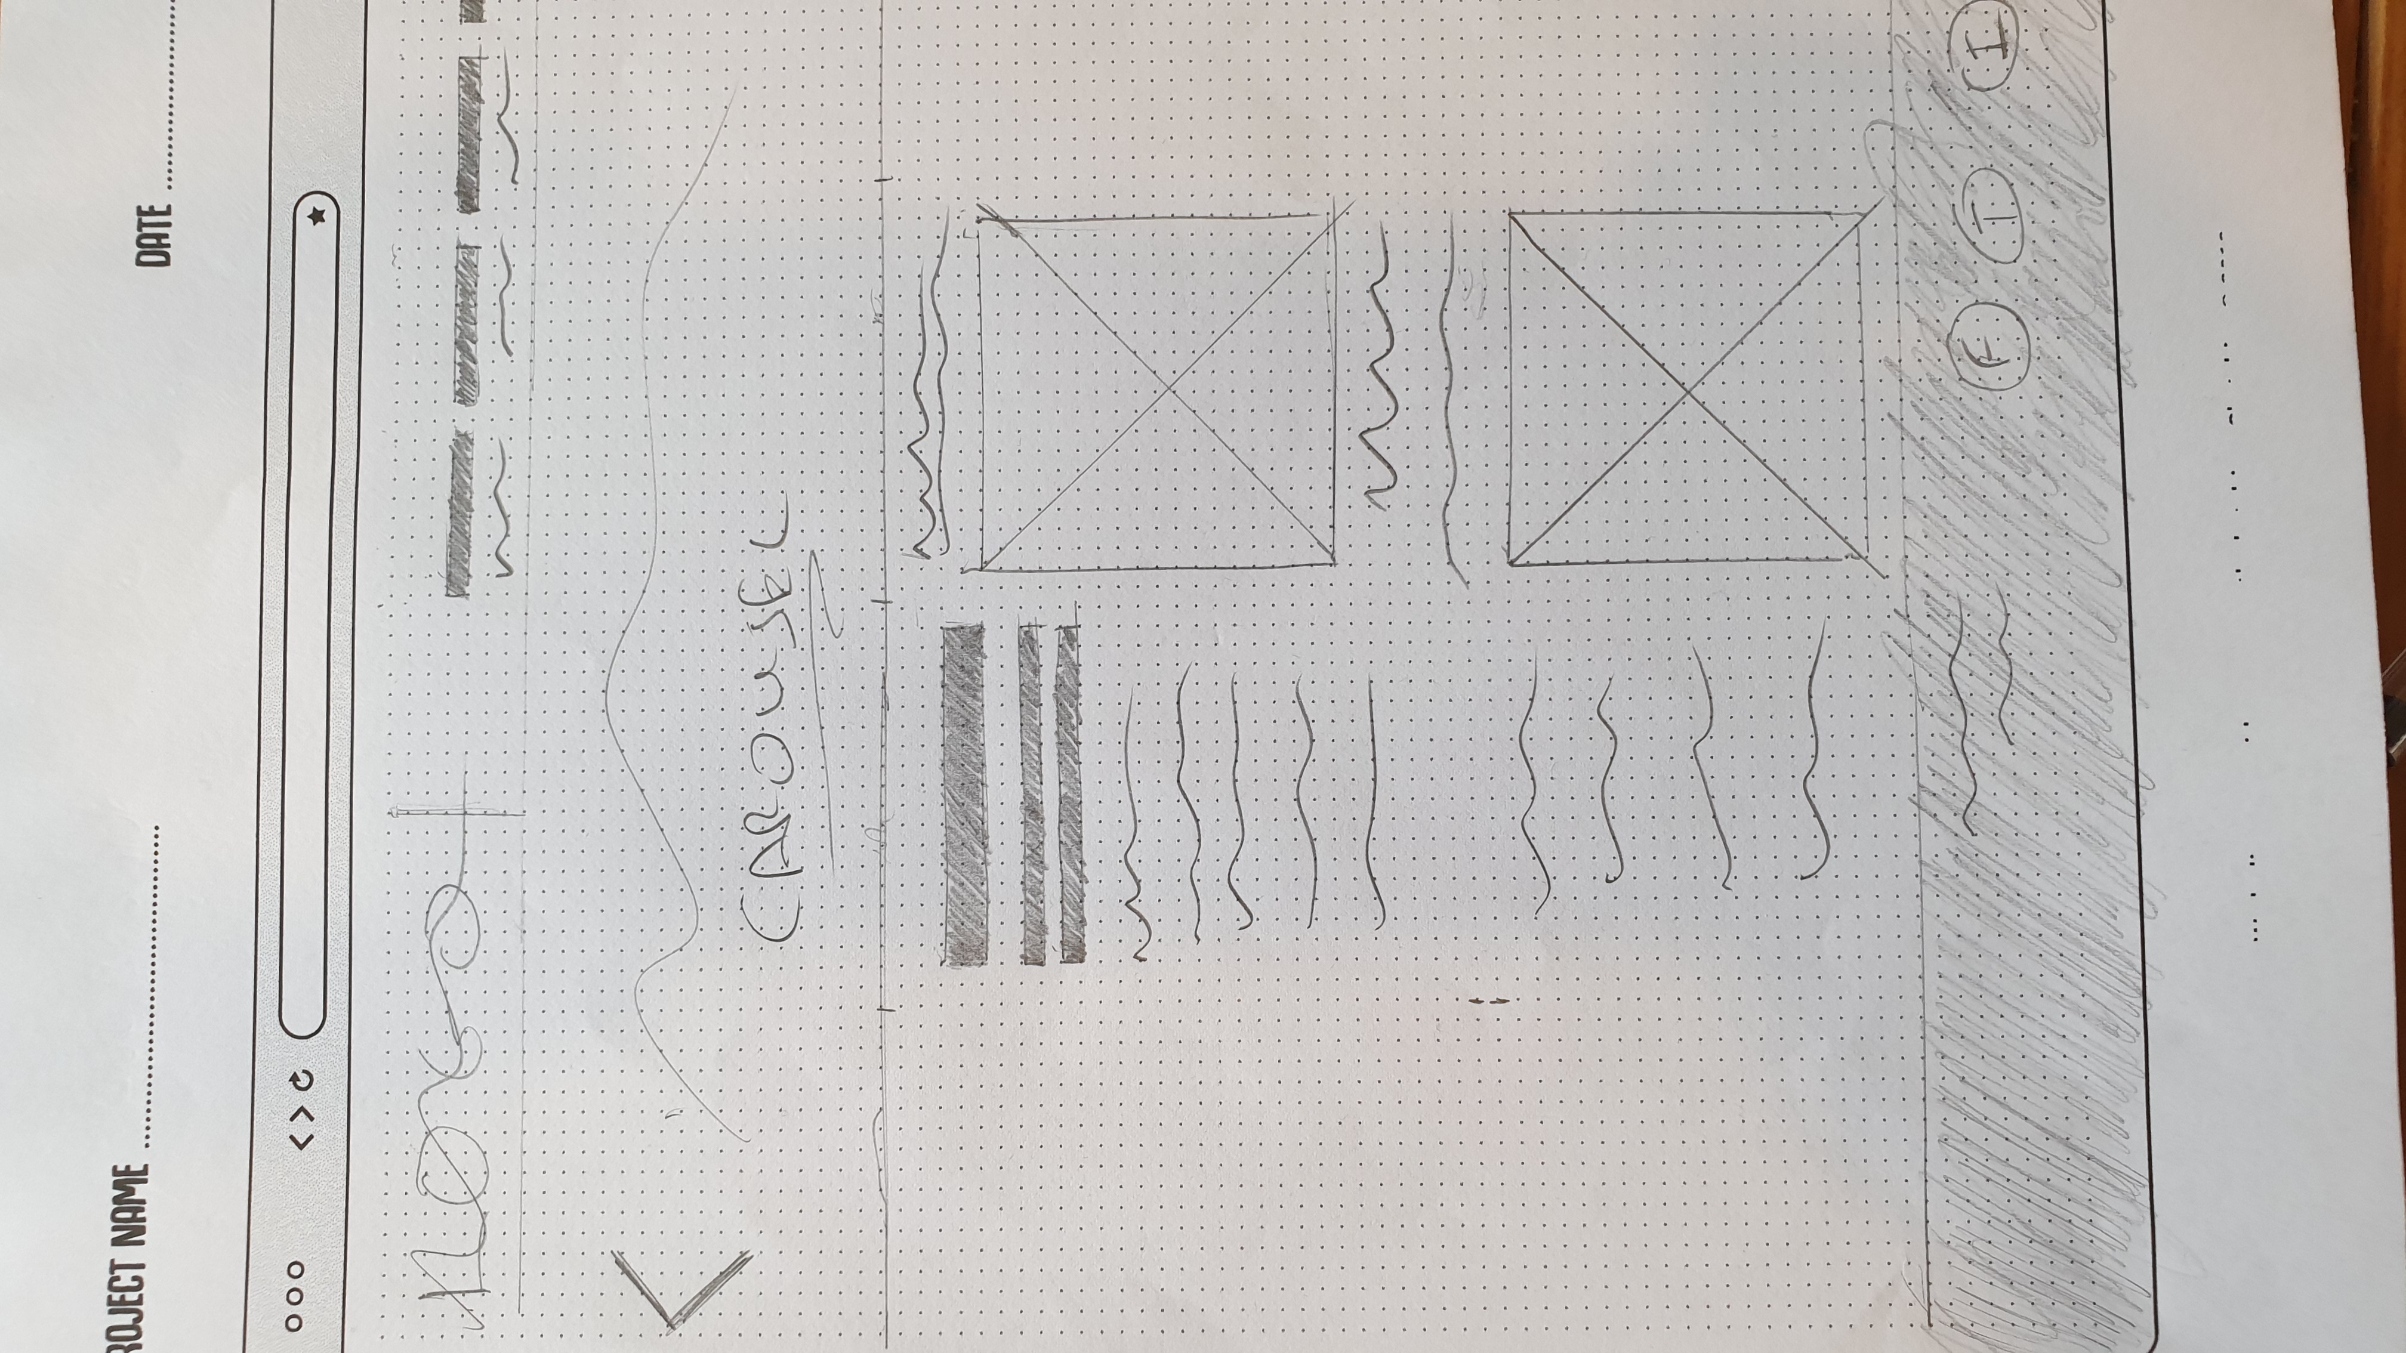 ROJECT NAME
DATE
CAROUSEL
F T I